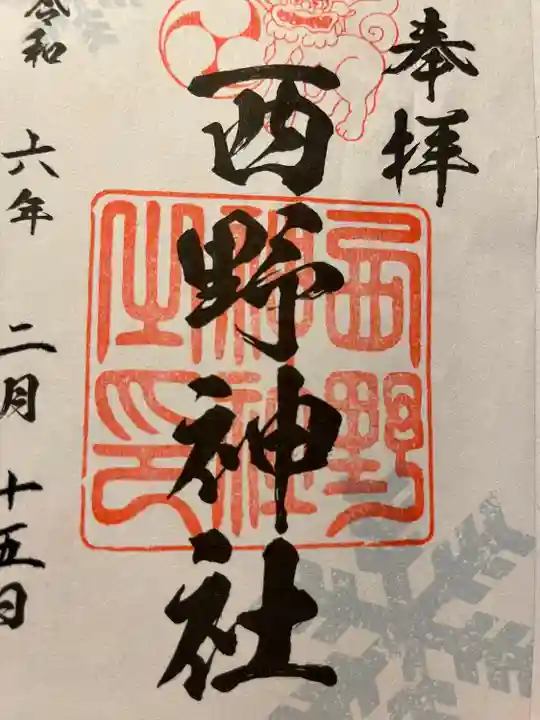 奉拝
西野神社
西野
神社
之印
令和六年二月十五日